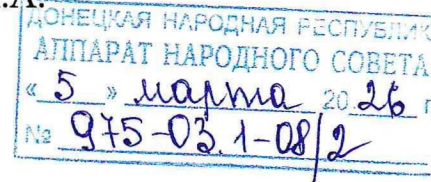 .А.
ДОНЕЦКАЯ НАРОДНАЯ РЕСПУБЛИК
АППАРАТ НАРОДНОГО СОВЕТА
« 5 » марта 20 26 г
№ 975-03.1-08/2